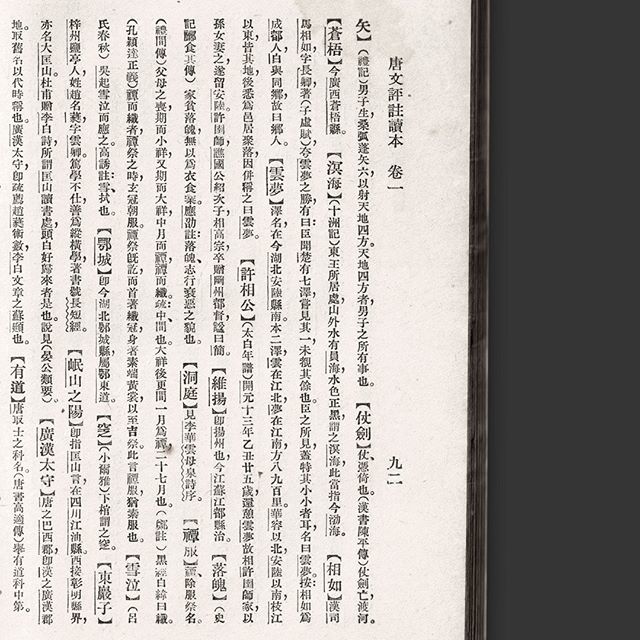 唐文評註讀本　卷一　九二
矢】（禮記）男子生桑弧蓬矢六以射天地四方天地四方者男子之所有事也。【仗劍】仗、憑倚也。（漢書陳平傳）仗劍亡渡河。
【蒼梧】今廣西蒼梧縣。【溟海】（十洲記）東王所居處山外水有員海水色正黑謂之溟海此當指今渤海。【相如】漢司
馬相如字長卿著（子虛賦）夸雲夢之勝有曰臣聞楚有七澤嘗見其一未覩其餘也臣之所見蓋特其小小者耳名曰雲夢。按相如爲
成都人白與同鄉故曰鄉人。【雲夢】澤名在今湖北安陸縣南本二澤雲在江北夢在江南方八九百里華容以北安陸以南枝江
以東皆其地後悉爲邑居聚落因併稱之曰雲夢。【許相公】（太白年譜）開元十三年乙丑廿五歲還憩雲夢故相許圉師家以
孫女妻之遂留安陸許圉師譙國公紹次子相高宗卒贈幽州都督諡曰簡。【維揚】卽揚州也今江蘇江都縣治。【落魄】（史
記酈食其傳）家貧落魄無以爲衣食業應劭註落魄志行衰惡之貌也。【洞庭】見李華雲母泉詩序。【禫服】禫、除服祭名。
（禮間傳）父母之喪期而小祥又期而大祥中月而禫禫而纖疏、中、間也。大祥後更間一月爲禫二十七月也。（鄭註）黑經白緯曰纖
（孔穎達正義）禫而纖者禫祭之時玄冠朝服禫祭旣訖而首著纖冠身者素端黃裳以至吉祭此言禫服猶素服也。【雪泣】（呂
氏春秋）吳起雪泣而應之高誘註、雪、拭也。【鄂城】卽今湖北鄂城縣屬鄂東道。【窆】（小爾雅）下棺謂之窆。【東巖子】
梓州鹽亭人姓趙名蕤字雲卿篤學不仕善爲縱橫學著書號長短經。【岷山之陽】卽指匡山言在四川江油縣西接彰明縣界
亦名大匡山杜甫贈李白詩所謂匡山讀書處頭白好歸來者是也說見（晏公類要）【廣漢太守】唐之巴西郡卽漢之廣漢郡
地取舊名以代時稱也。廣漢太守卽疏薦趙蕤術數李白文章之蘇頲也。【有道】唐取士之科名（唐書高適傳）舉有道科中第。